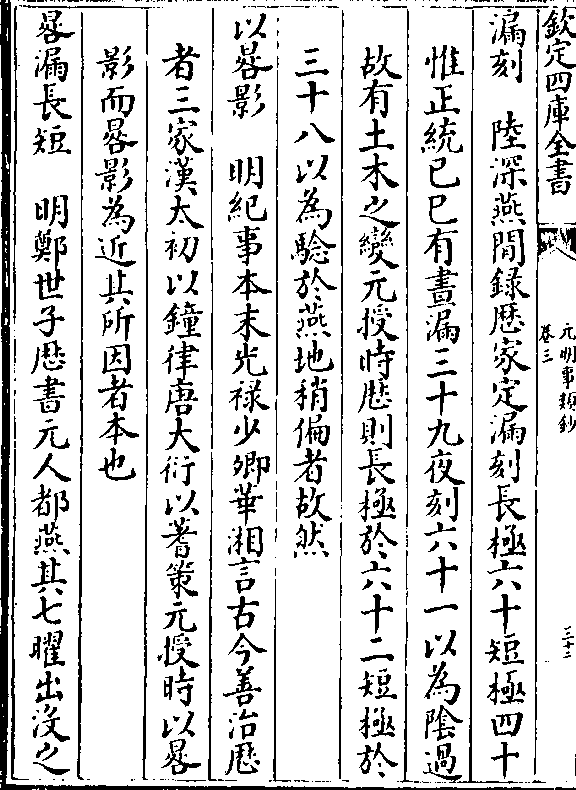 欽定四庫全書
元明事類鈔
卷三
三十二
漏刻　陸深燕閒録歴家定漏刻長極六十短極四十
惟正統己巳有晝漏三十九夜刻六十一以為陰過
故有土木之變元授時歴則長極於六十二短極於
三十八以為騐於燕地稍偏者故然
以晷影　明紀事本末光禄少卿華湘言古今善治歴
者三家漢太初以鐘律唐大衍以蓍策元授時以晷
影而晷影為近其所因者本也
晷漏長短　明鄭世子歴書元人都燕其七曜出没之